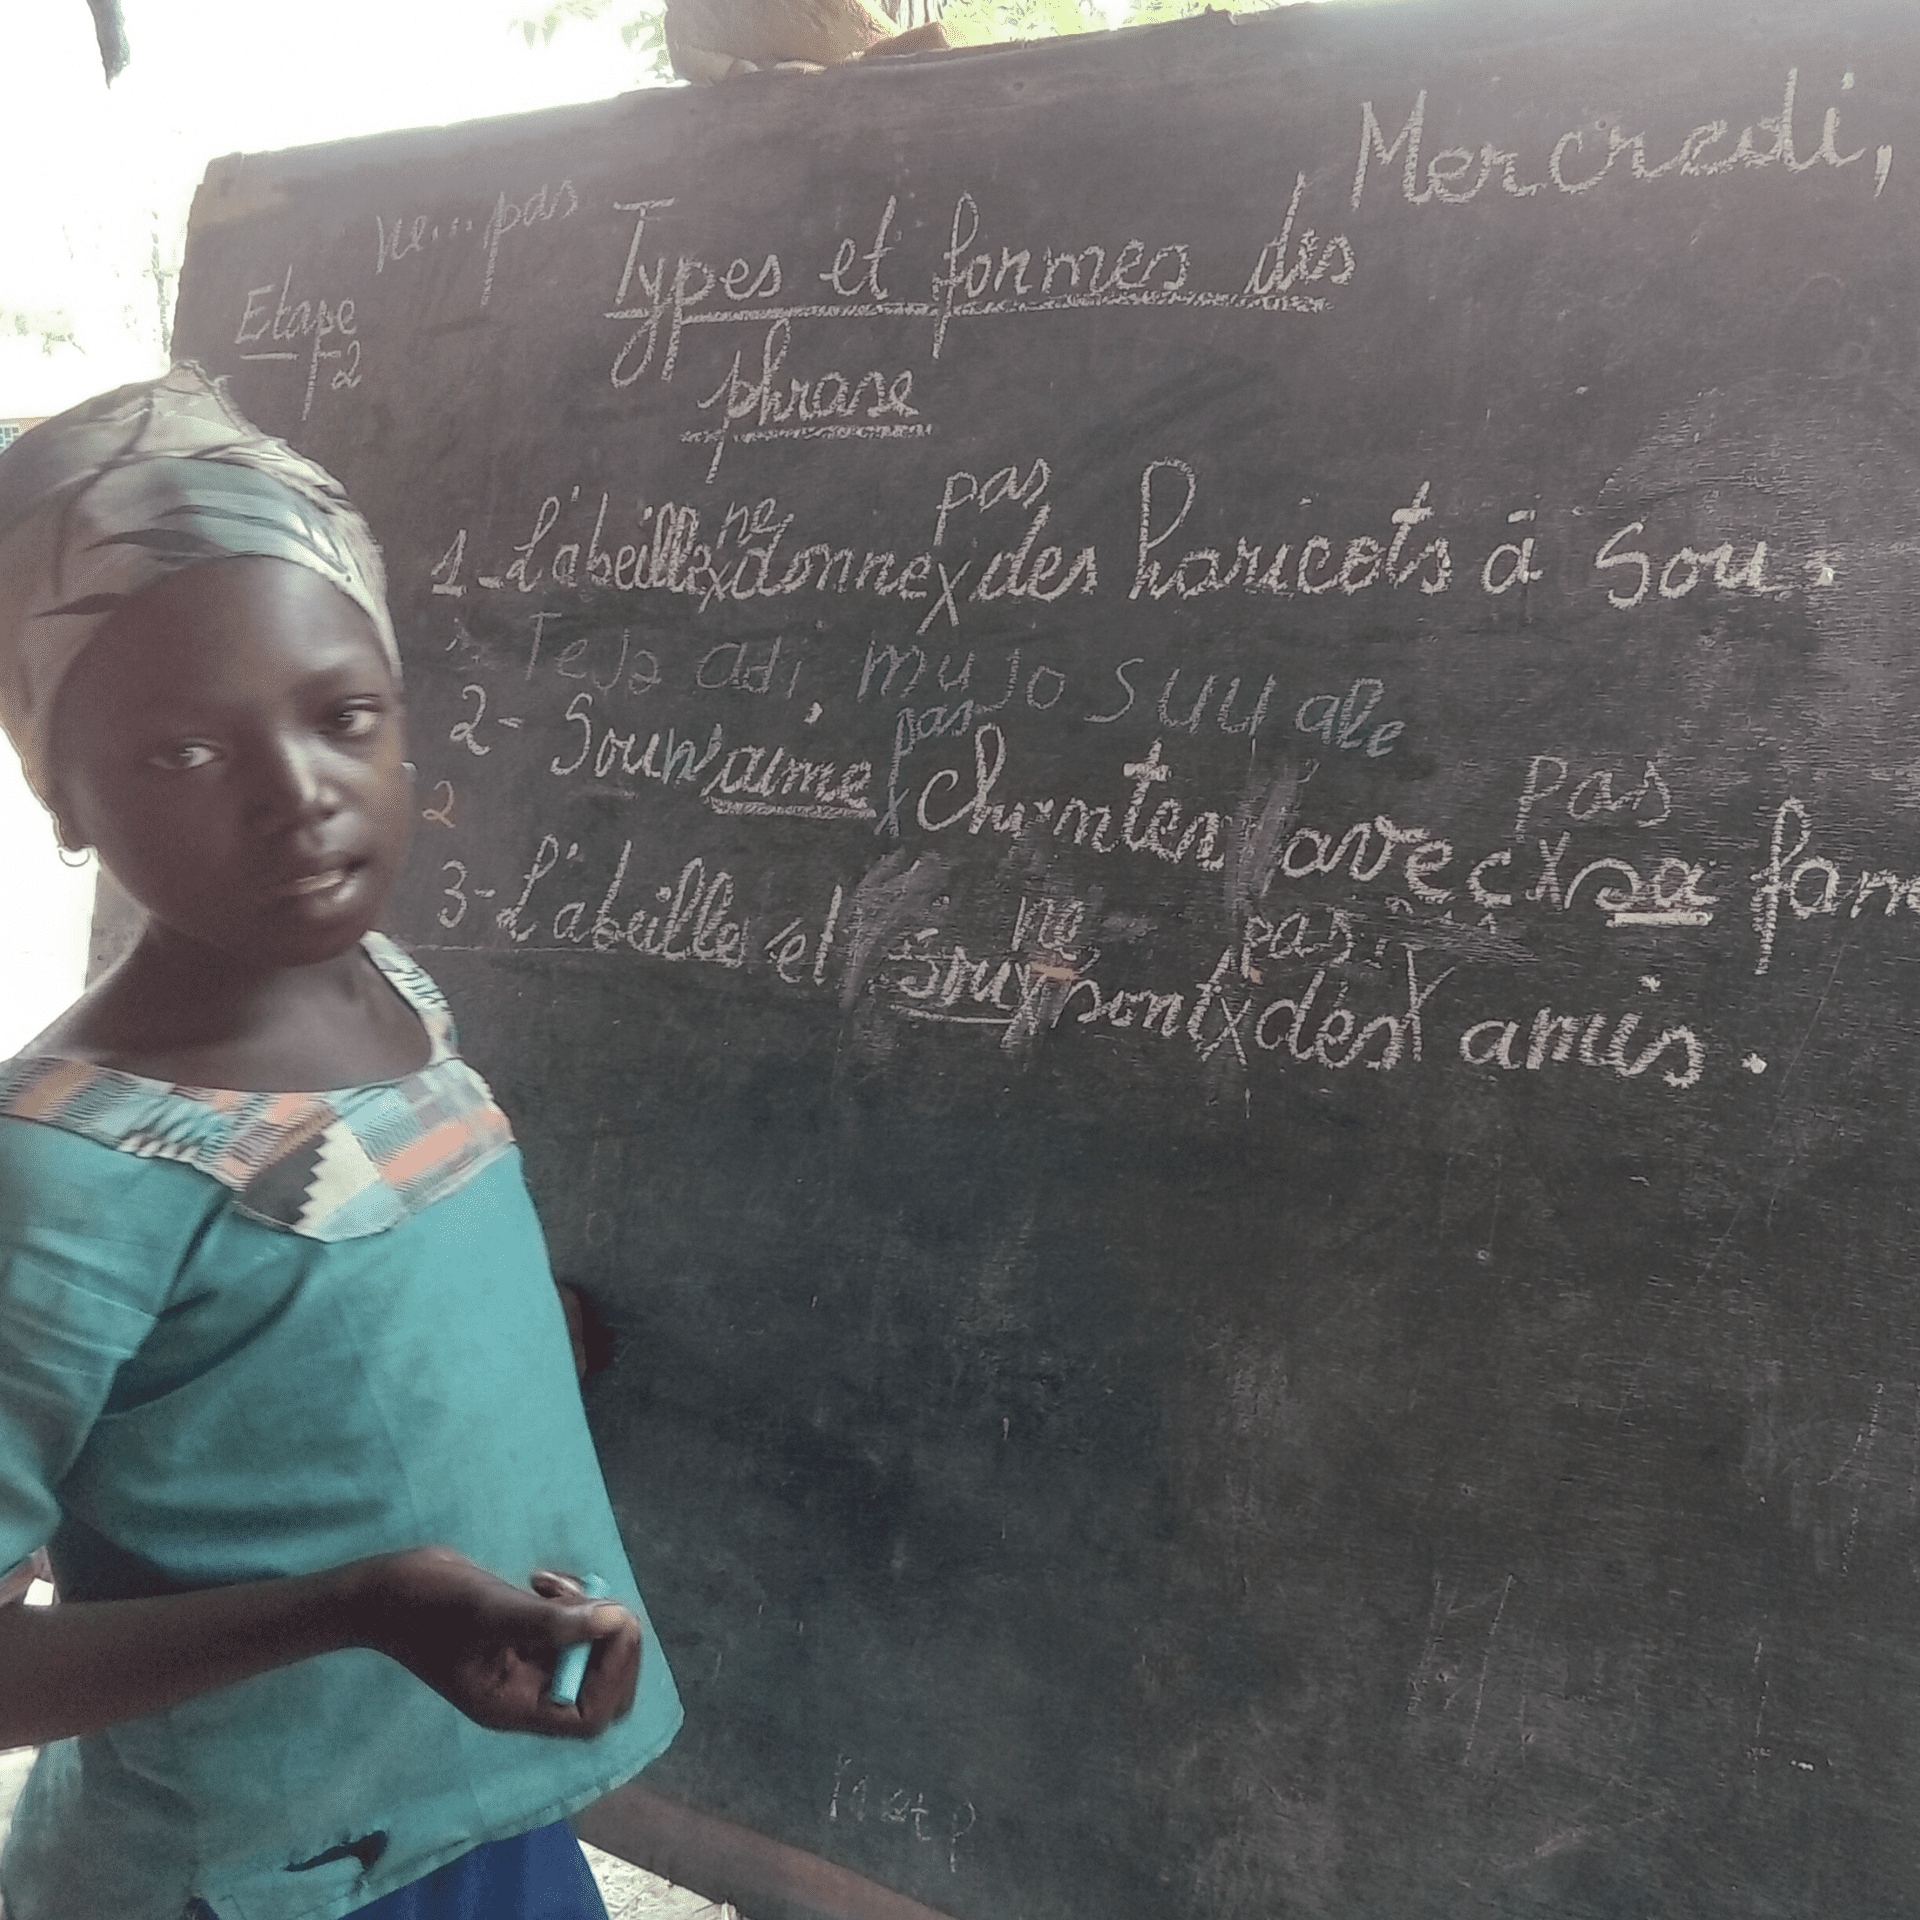 Mercredi,
ne... pas
Types et formes des
phrase
Etape
F2
ne pas
1-L'abeille donne des haricots à Sou.
adi, mu jo suu
pas
2- Sou n'aime chanter avec sa fam
pas
2
ne pas
3-L'abeille et Sou sont des amis.